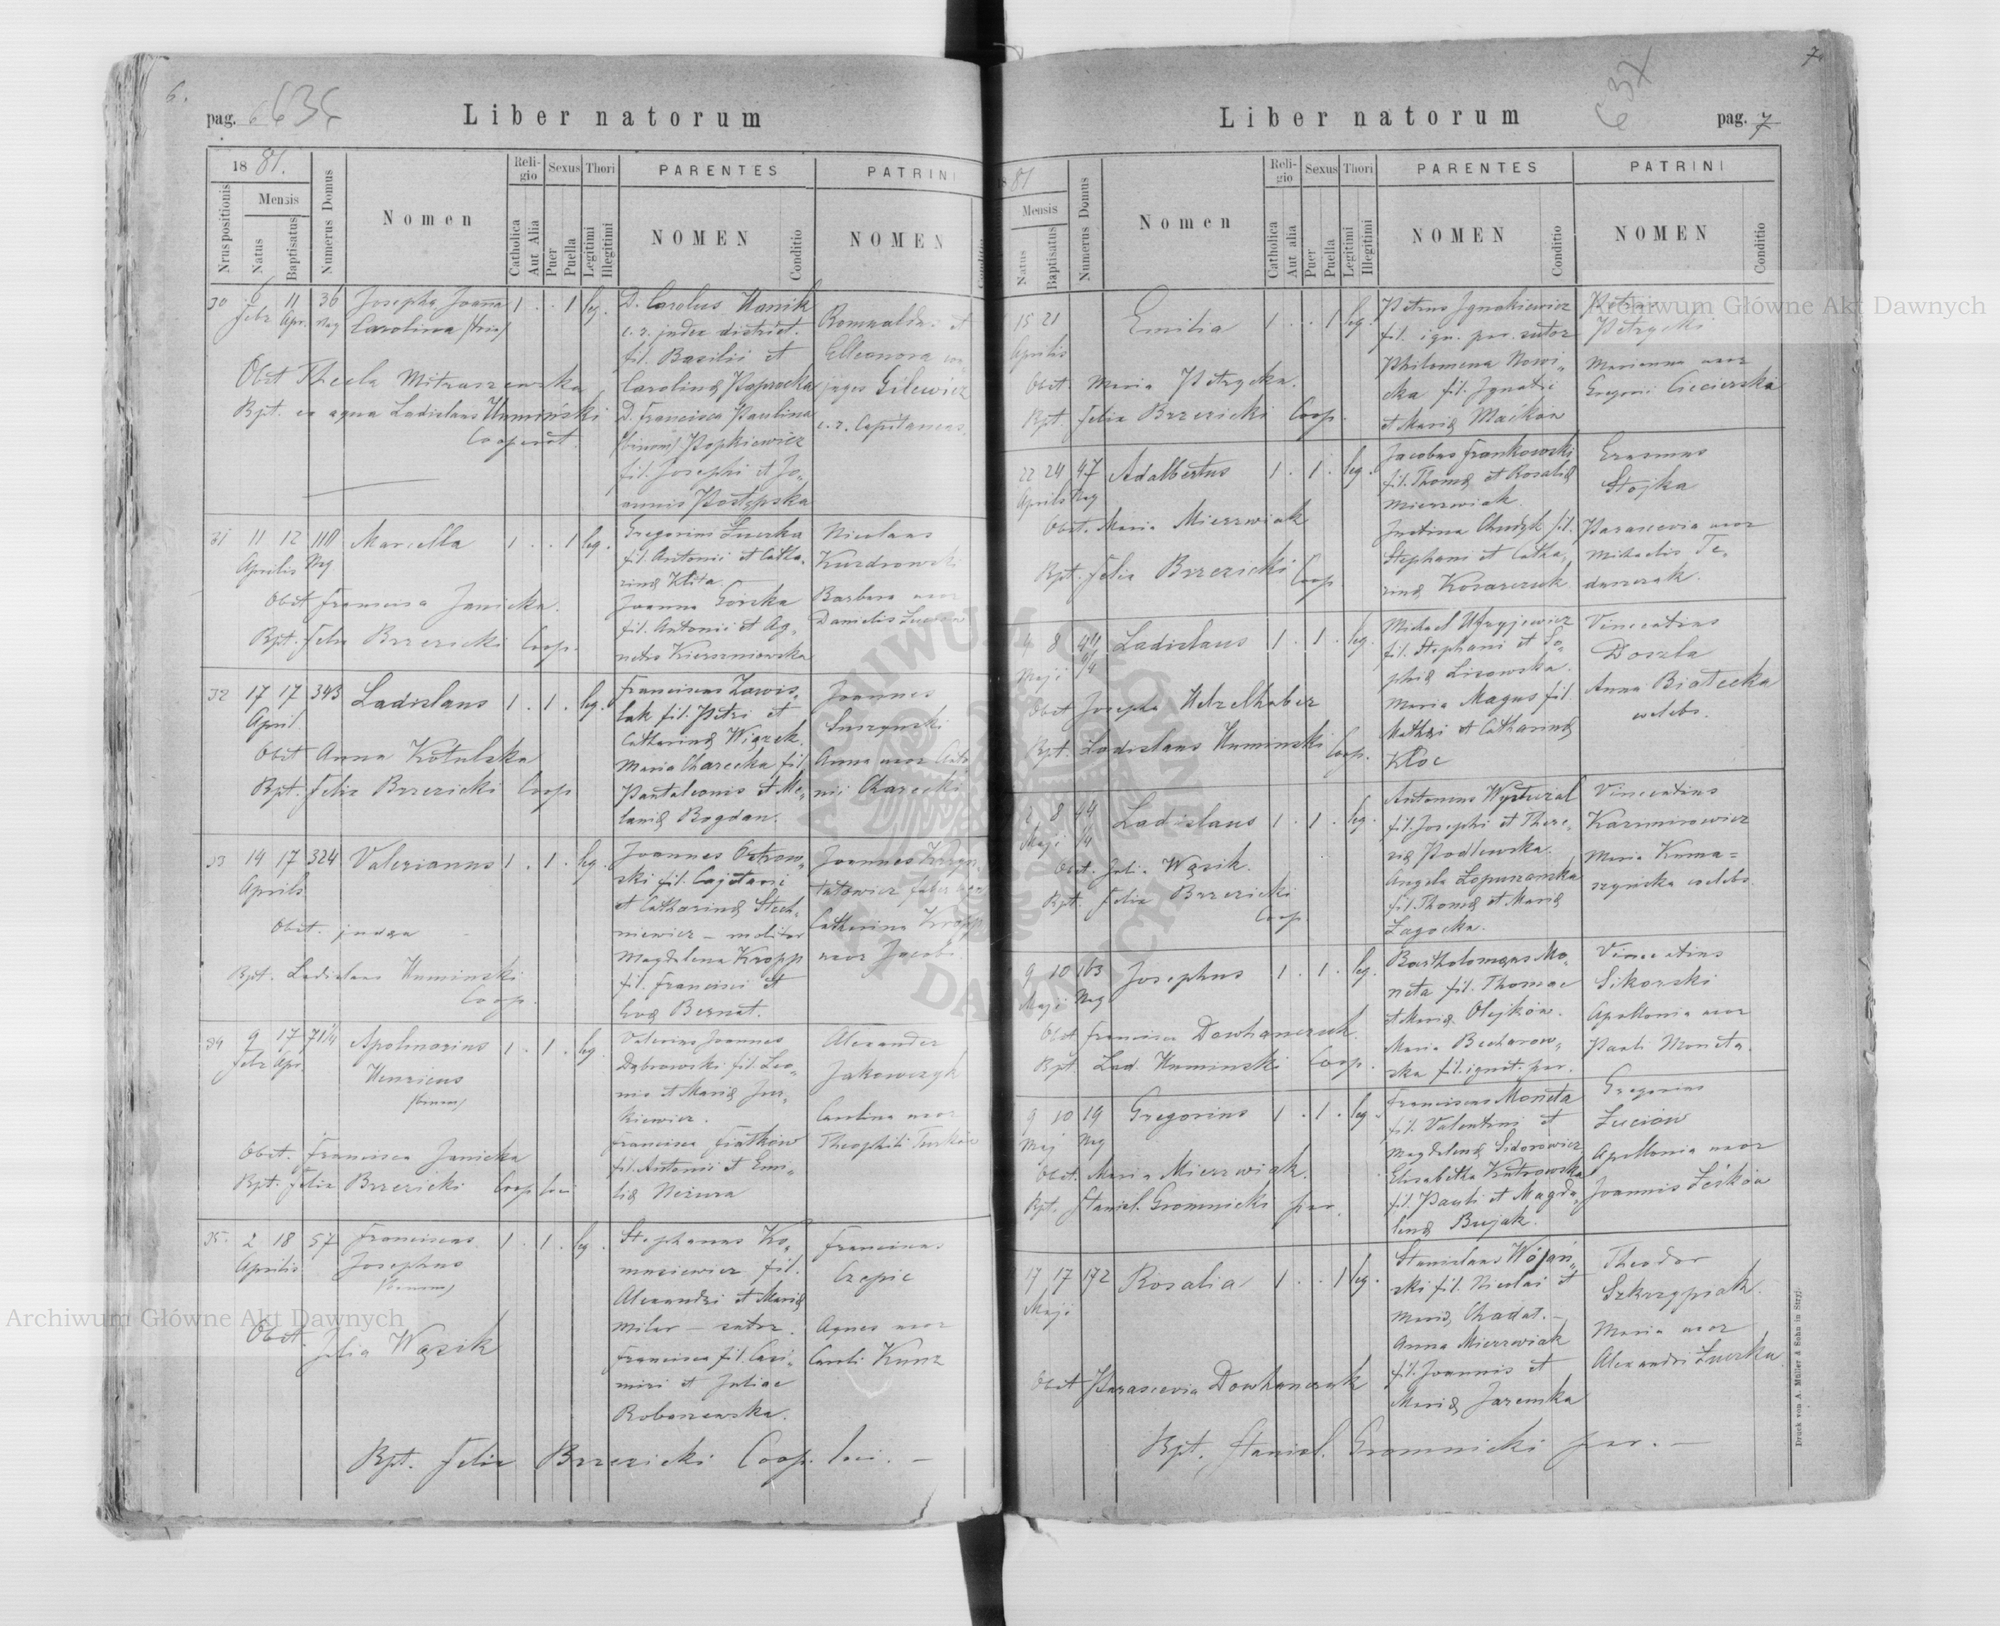 6.
pag. 6 636
Liber natorum
1881.
Nrus positionis
Mensis
Natus
Baptisatus
Numerus Domus
Nomen
Religio
Catholica
Aut Alia
Sexus
Puer
Puella
Thori
Legitimi
Illegitimi
PARENTES
NOMEN
Conditio
PATRINI
NOMEN
Conditio
30 6 Febr 11 Apr. 36 Nag Josepha Joanna Carolina /trin/ 1 . . 1 leg.
D. Carolus Hanik
c. r. judex district.
fil. Basilii et
Carolinæ Paprocka
D. Francisca Paulina
/binom/ Popkiewicz
fil. Josephi et Jo„
annis Postępska
Romualdus et
Elleonora con
juges Gilewicz
c. r. Capitaneus.
Obst. Thecla Mitraszewska
Bpt. ex aqua Ladislaus Humiński
Cooperat.
31 11 12 Aprilis 110 Nag Marcella 1 . . 1 leg.
Gregorius Łuczka
fil. Antonii et Catha„
rinæ Klita.
Joanna Górska
fil. Antonii et Ag„
netis Kierszniowska
Nicolaus
Kurdrowski
Barbara uxor
Danielis
Obst. Francisca Janicka.
Bpt. Felix Brzezicki Coop.
32 17 17 April 343 Ladislaus 1 . 1 . leg.
Franciscus Zawis„
lak fil. Petri et
Catharinæ Wiązek.
Maria Charecka fil.
Pantaleonis et Me„
laniæ Bogdan.
Joannes
Suszynski
Anna uxor Anto
nii Charecki
Obst. Anna Kotulska
Bpt. Felix Brzezicki Coop
33 14 17 Aprilis 324 Valerianus 1 . 1 . leg.
Joannes Ostrow„
ski fil. Cajetani
et Catharinæ Stech„
niewicz – molitor
Magdalena Kropp
fil. Francisci et
Evæ Bernat.
Joannes
Catharina Kropp
uxor Jacobi
Obst. judæa
Bpt. Ladislaus Huminski
Coop.
34 9 Febr 17 Apr. 71 1/4 Apolinarius Henricus /binom/ 1 . 1 . leg
Valerius Joannes
Dąbrowski fil. Leo„
nis et Mariæ Jur„
kiewicz.
Francisca Fiatków
fil. Antonii et Emi„
liæ Neżura
Alexander
Jakowczyk
Carolina uxor
Theophili Turków
Obst. Francisca Janicka
Bpt. Felix Brzezicki Coop loci
35. 2 18 Aprilis 57 Franciscus Josephus /binom/ 1 . 1 . leg.
Stephanus Ko„
masiewicz fil.
Alexandri et Mariæ
Miler – sutor.
Francisca fil. Casi„
miri et Juliae
Boboszewska.
Franciscus
Czepic
Agnes uxor
Caroli Kunz
Obst. Julia Wąsik
Bpt. Felix Brzezicki Coop. loci. –
7.
637
Liber natorum
pag. 7
1881
Mensis
Natus
Baptisatus
Numerus Domus
Nomen
Religio
Catholica
Aut alia
Sexus
Puer
Puella
Thori
Legitimi
Illegitimi
PARENTES
NOMEN
Conditio
PATRINI
NOMEN
Conditio
15 21 Aprilis Emilia 1 . . 1 leg.
Petrus Ignakiewicz
fil. ign. par. sutor
Philomena Nowi„
cka fil. Ignatii
et Mariæ Maćków
Petrus
Petrycki
Marianna uxor
Gregorii Ciecierski
Obst. Maria Petrycka.
Bpt. Felix Brzezicki Coop.
22 24 Aprilis 47 Nag Adalbertus 1 . 1 . leg.
Jacobus Frankowski
fil. Thomæ et Rosaliæ
Mierzwiak
Justina Chudyk fil.
Stephani et Catha„
rinæ Kosarczuk
Erasmus
Stojka
Parascevia uxor
Michaelis Fe„
duszczak.
Obst. Maria Mierzwiak
Bpt. Felix Brzezicki Coop
8 Maji Ladislaus 1 . 1 . leg.
Michael Uhryjewicz
fil. Stephani et So„
phiæ Lisowska.
Maria Magus fil.
Mathæi et Catharinæ
Kłoc
Vincentius
Doszla
Anna Białecka
celebs.
Obst. Josepha Hetzelhaber
Bpt. Ladislaus Huminski Coop.
2 8 Maji Ladislaus 1 . 1 . leg.
Antonius Wysterzal
fil. Josephi et There„
siæ Podlewska.
Angela Lopuszanska
fil. Thomæ et Mariæ
Zagocka.
Vincentius
Kazimirowicz
Maria Kuma=
szynska celebs.
Obst. Julia Wąsik.
Bpt. Felix Brzezicki
Coop.
9 10 Maji 163 Nag Josephus 1 . 1 . leg.
Bartholomæus Mo„
neta fil. Thomae
et Mariæ Olejków.
Maria Becharow„
ska fil. ignot. par.
Vincentius
Sikorski
Apollonia uxor
Pauli Moneta.
Obst. Francisca Dowhanczuk.
Bpt. Lad. Huminski Coop.
9 10 Maj 19 Nag Gregorius 1 . 1 . leg.
Franciscus Moneta
fil. Valentini et
Magdalenæ Sidorowicz
Elisabetha Kutrowska
fil. Pauli et Magda„
lenæ Bujak.
Gregorius
Łuciów
Apollonia uxor
Joannis Leśków
Obst. Maria Mierzwiak.
Bpt. Stanisl. Gromnicki par.
17 17 Maji 172 Rosalia 1 . . 1 leg.
Stanislaus Wójań„
ski fil. Nicolai et
Mariæ Chadat. –
Anna Mierzwiak
fil. Joannis et
Mariæ Jaremka
Theodor
Szkrzypiak.
Maria uxor
Alexandri Łuczka
Obst. Parascevia Dowhanczuk
Bpt. Stanisl. Gromnicki par. –
Druck von A. Müller & Sohn in Stryj.
Archiwum Główne Akt Dawnych
Archiwum Główne Akt Dawnych
ARCHIWUM GŁÓWNE AKT DAWNYCH